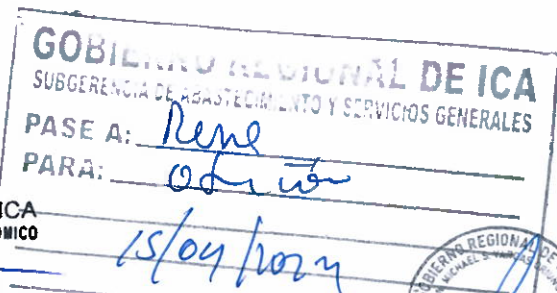 GOBIERNO REGIONAL DE ICA
SUBGERENCIA DE ABASTECIMIENTO Y SERVICIOS GENERALES
PASE A: Rene
PARA:
ICA
ÓMICO
15/04/2024
GOBIERNO REGIONAL DE
MICHAEL S. VARGAS